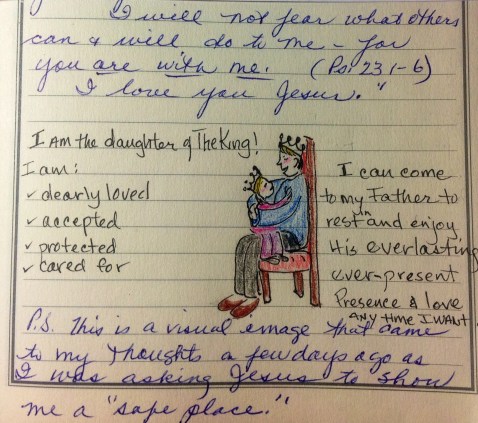 I will not fear what others
can & will do to me – for
you are with me. (Ps. 23 1-6)
I love you Jesus."
I AM the daughter of The King!
I am:
✓ dearly loved
✓ accepted
✓ protected
✓ cared for
I can come
to my Father to
rest in and enjoy
His everlasting
ever-present
Presence & love
ANY time I WANT.
P.S. This is a visual image that came
to my thoughts a few days ago as
I was asking Jesus to show
me a "safe place."